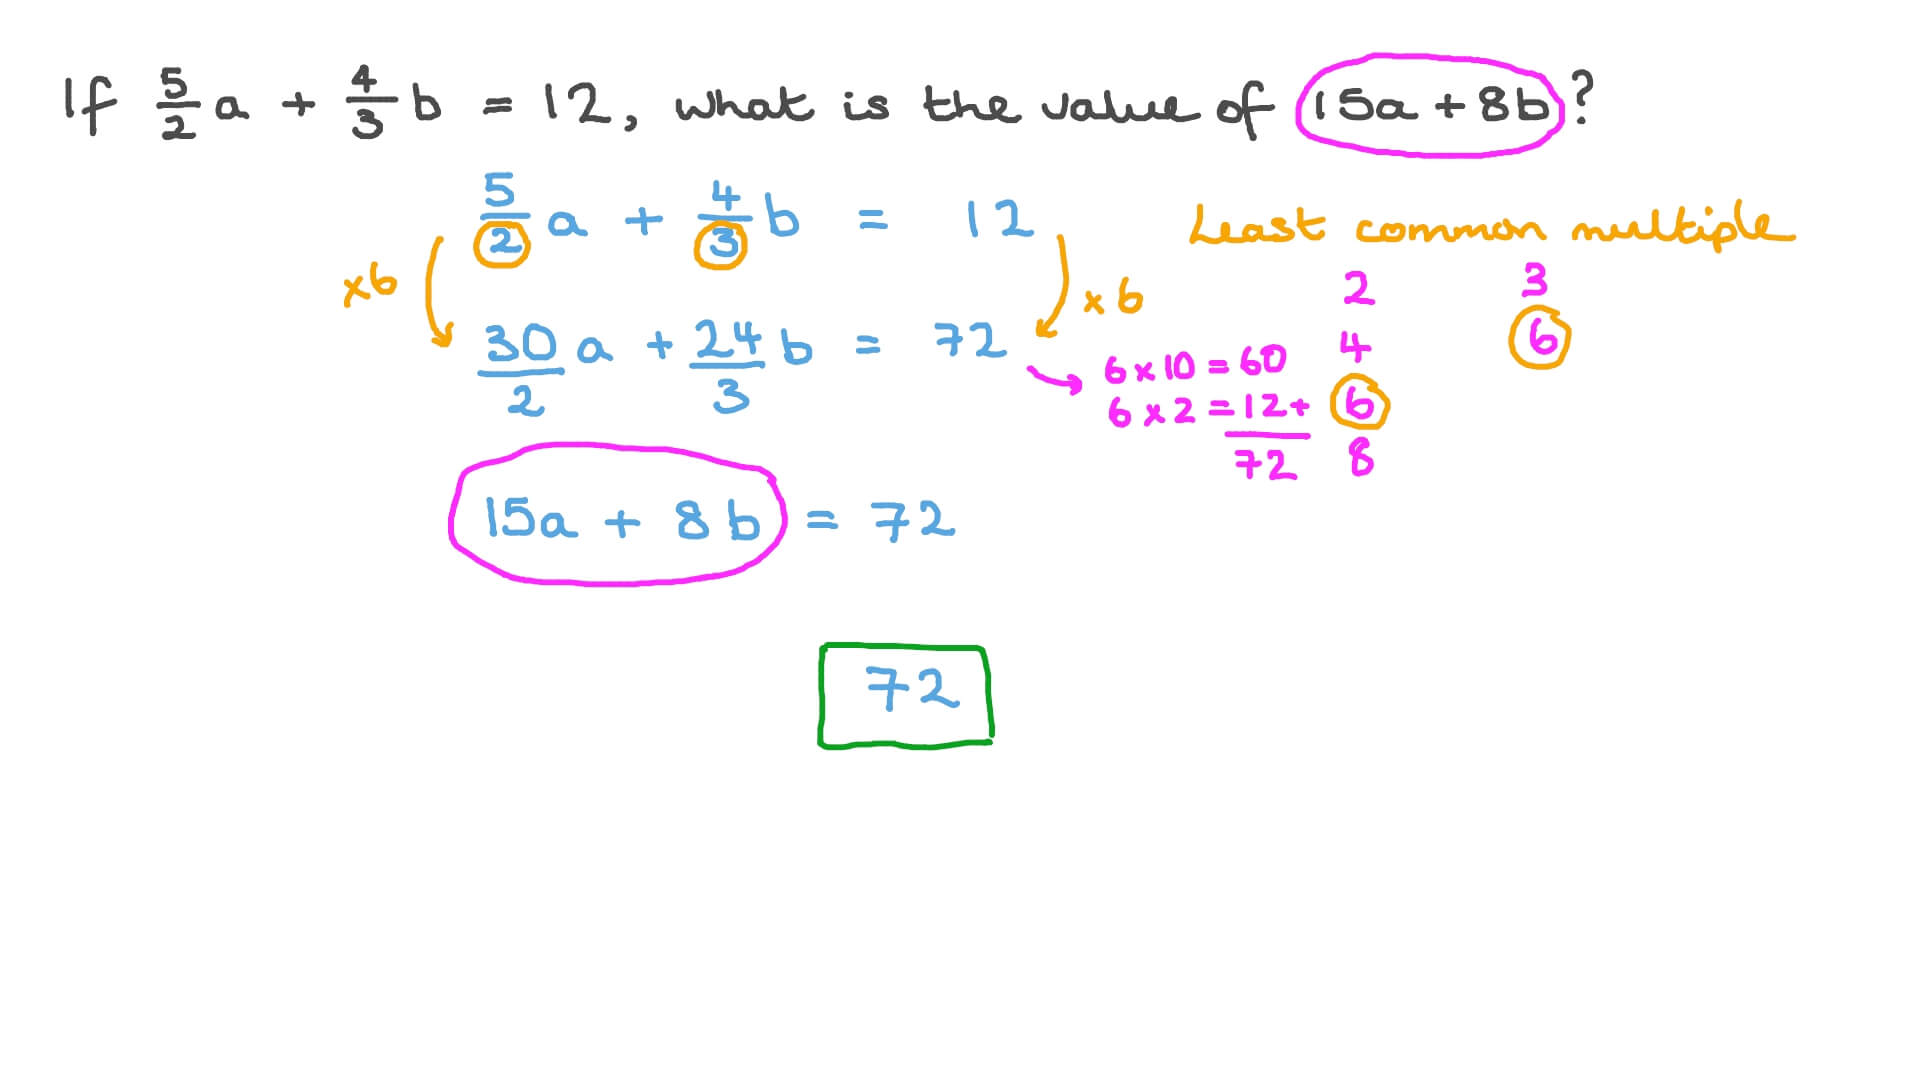 If 5/2 a + 4/3 b = 12, what is the value of 15a + 8b?
5/2 a + 4/3 b = 12
Least common multiple
x6
x6
2 3
4 6
6
8
30/2 a + 24/3 b = 72
6 x 10 = 60
6 x 2 = 12 +
72
15a + 8b = 72
72